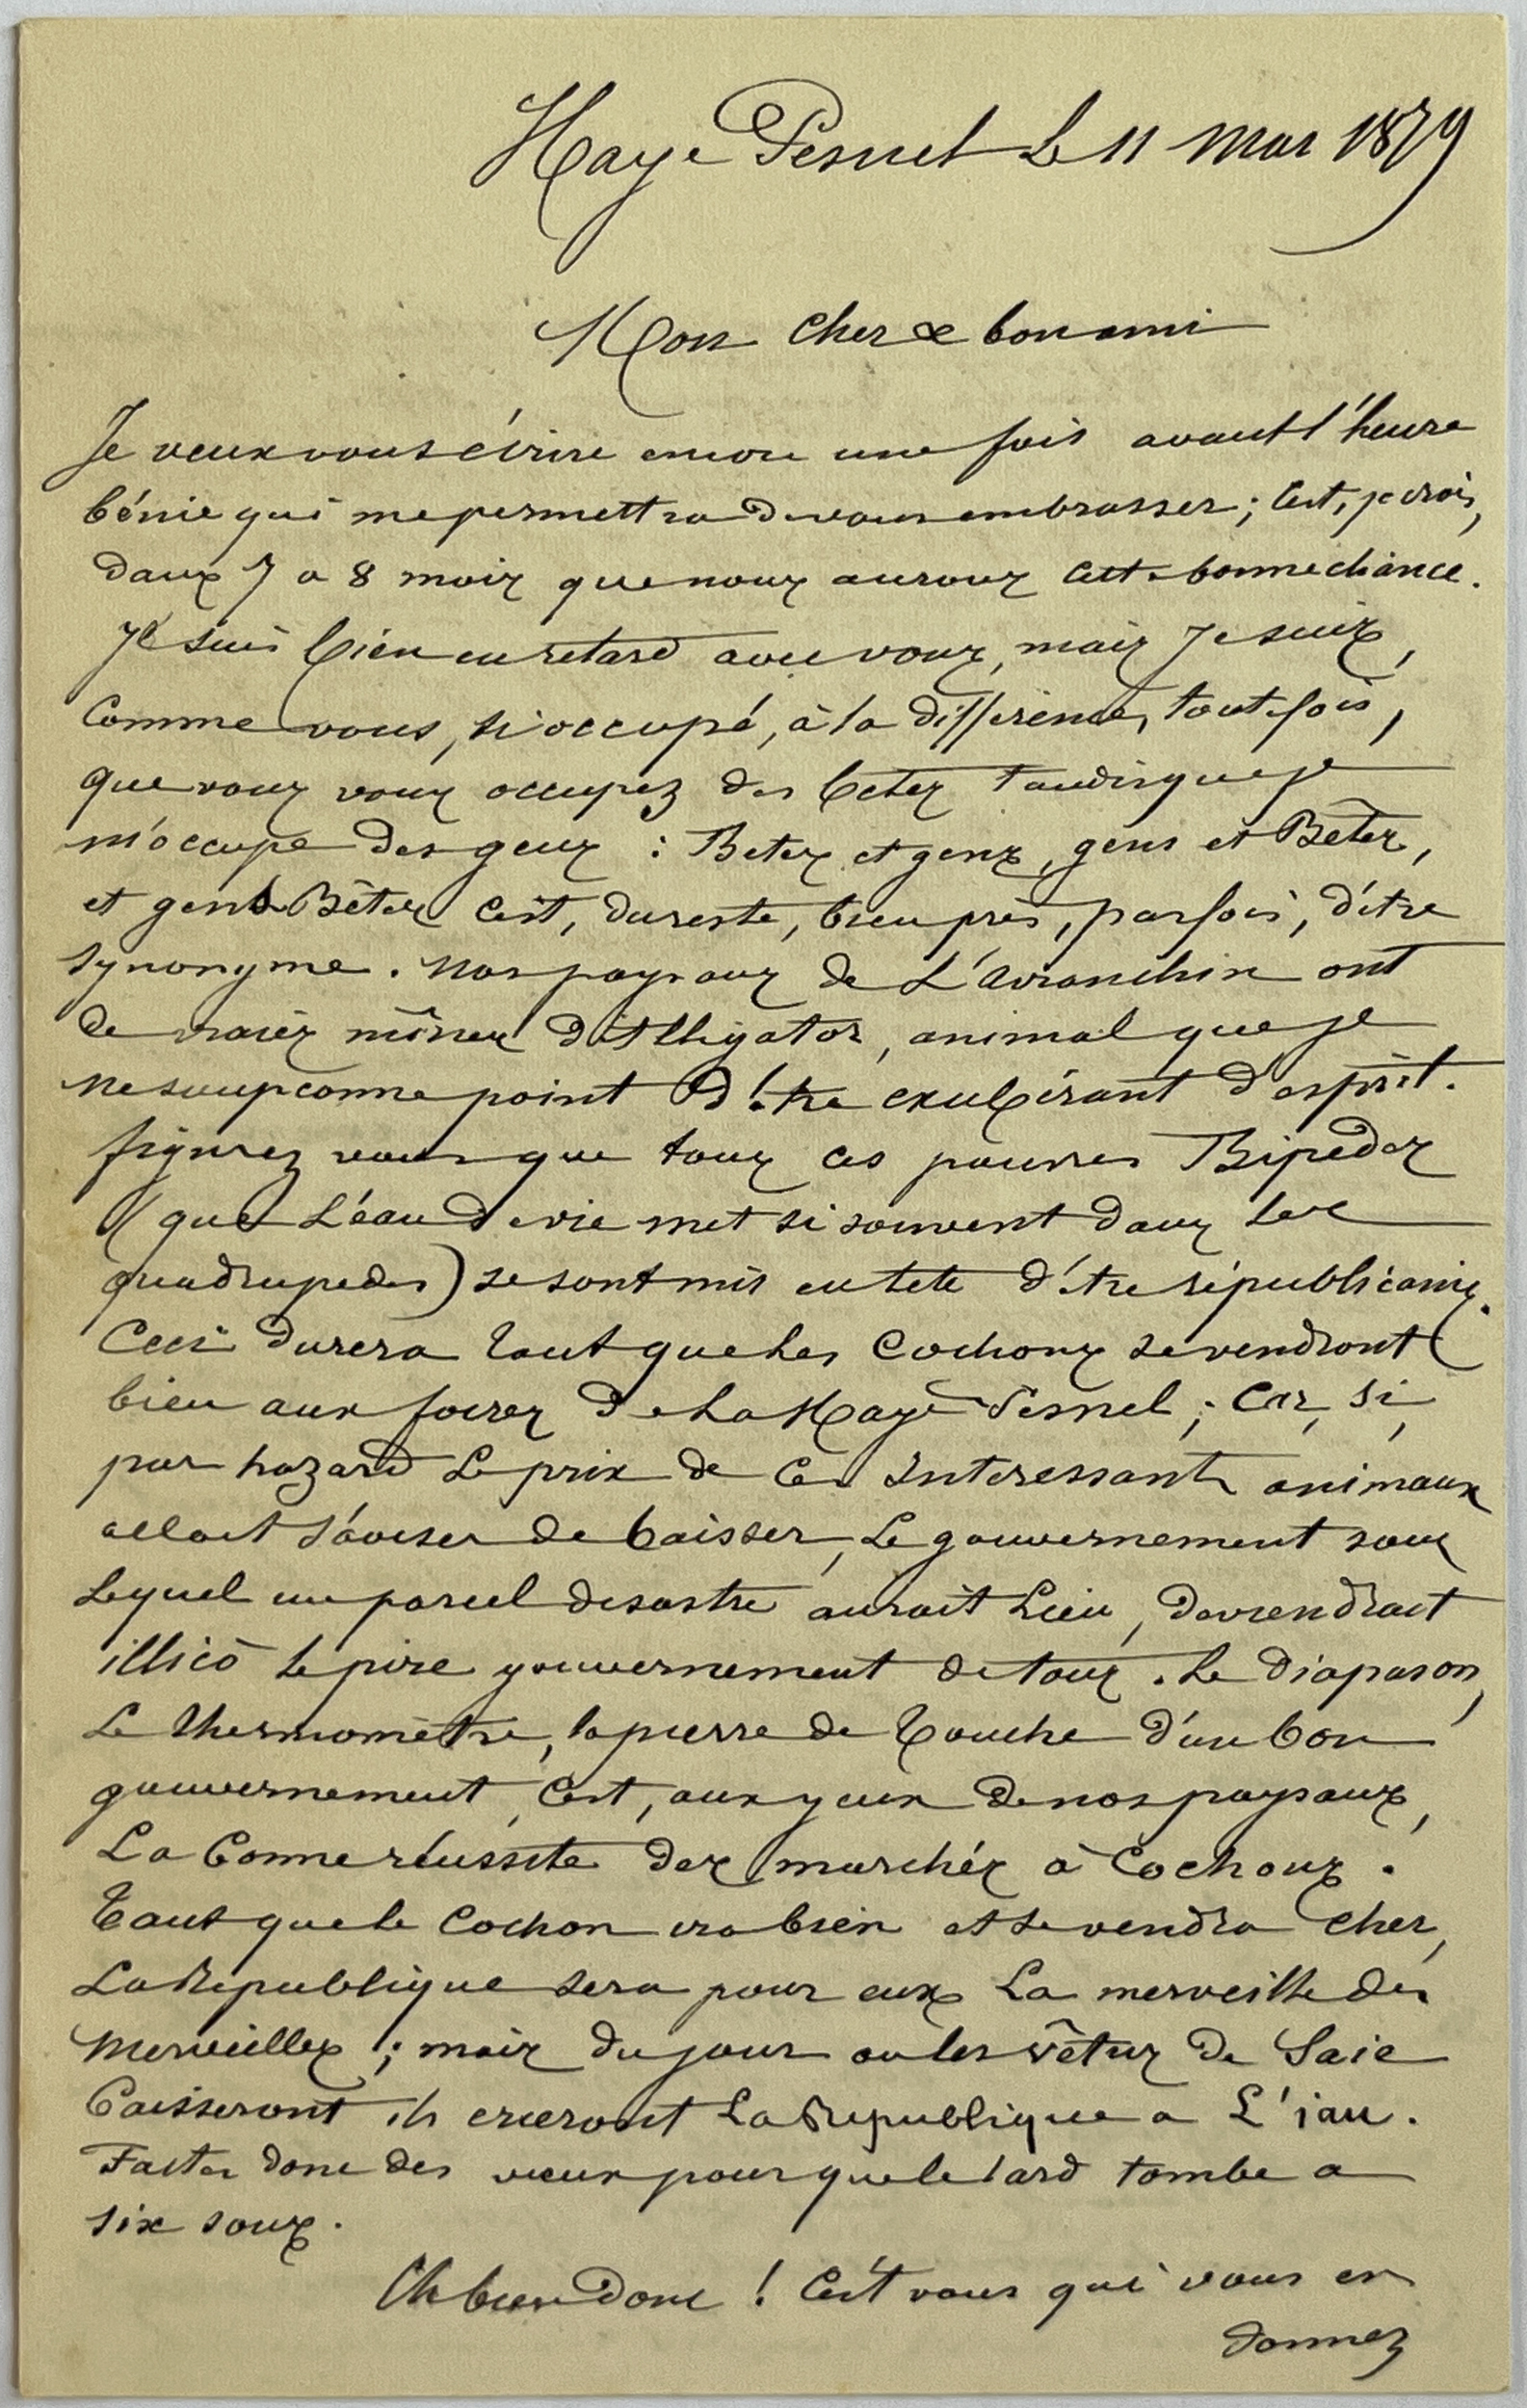 Haye Pesnel Le 11 Mar 1879
Mon Cher & bon ami
Je veux vous écrire encore une fois avant l'heure
bénie qui me permettra de vous embrasser ; C'est, je crois,
dans 7 a 8 mois que nous aurons cette bonne chance.
Je suis bien en retard avec vous, mais Je suis,
Comme vous, si occupé, à la différence, toutefois,
que vous vous occupez des betes tandis que je
m'occupe des gens : Betes et gens, gens et Bêtes,
et gens Bêtes C'est, du reste, bien près, parfois, d'être
synonyme. Nos paysans de L'avranchin ont
de vraies mines d'Alligator, animal que je
ne soupconne point d'être exubérant d'esprit.
figurez vous que tous ces pauvres Bipedes
(que L'eau de vie met si souvent dans les
quadrupedes) se sont mis en tete d'être républicains.
Ceci durera tant que les Cochons se vendront
bien aux foires de La Haye Pesnel ; Car, si,
par hazard Le prix de Ces Interessants animaux
allait s'aviser de baisser, Le gouvernement sous
Lequel un pareil desastre aurait Lieu, deviendrait
illicò le pire gouvernement de tous. Le Diapason,
Le thermomètre, la pierre de touche d'un bon
gouvernement, C'est, aux yeux de nos paysans,
La bonne réussite des marchés à Cochons.
Tant que le Cochon ira bien et se vendra Cher,
La Republique sera pour eux La merveille des
Merveilles ; mais du jour ou les vêtus de Saie
baisseront ils crieront La Republique a L'iau.
Faites donc des vœux pour que le lard tombe a
six sous.
Eh bien donc ! C'est vous qui vous en
donnez